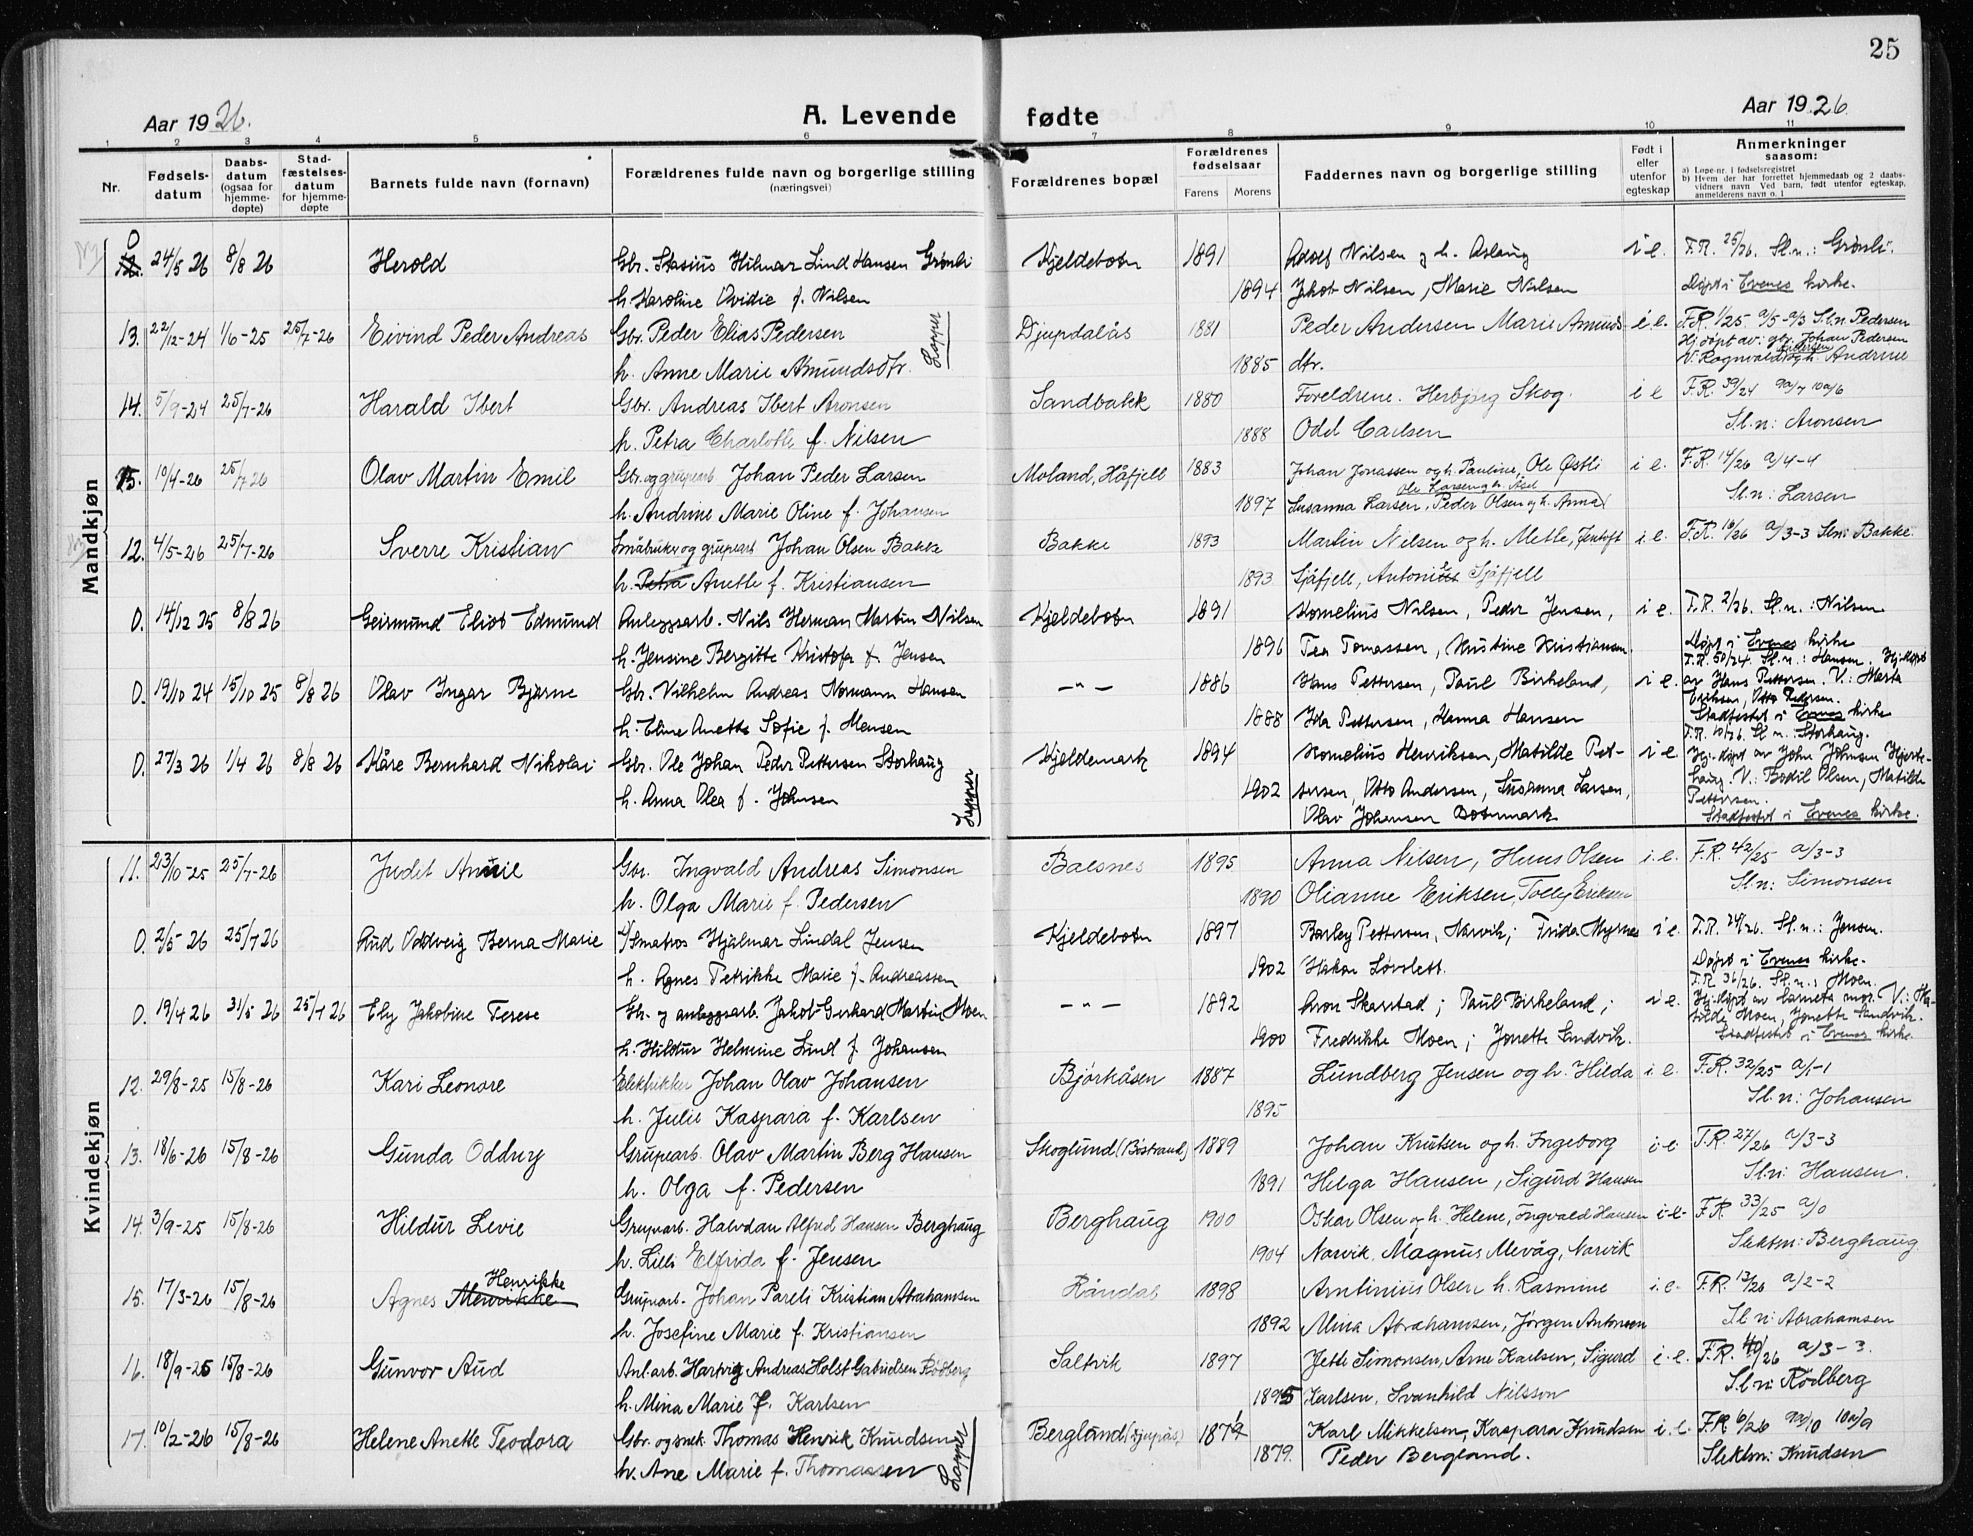 25
Aar 1926.
A. Levende
fødte
Aar 1926
1 2 3 4 5 6 7 8 9 10 11
Nr.
Fødsels-datum
Daabs-datum (ogsaa for hjemme-døpte)
Stad-fæstelses-datum for hjemme-døpte
Barnets fulde navn (fornavn)
Forældrenes fulde navn og borgerlige stilling (næringsvei)
Forældrenes bopæl
Forældrenes fødselsaar
Farens Morens
Faddernes navn og borgerlige stilling
Født i eller utenfor egteskap
Anmerkninger saasom:
a) Løpe-nr. i fødselsregistret
b) Hvem der har forrettet hjemmedaab og 2 daabs-vidners navn Ved barn, født utenfor egteskap, anmelderens navn o. l
Mandkjøn
0 24/5 26 8/8 26 Herold Gbr. Stasius Hilmar Lind Hansen Grønli Kjeldebotn 1891 Adolf Nilsen og h. Aslaug i e. F.R. 25/26. Sl.n.: Grønli.
h. Karoline Ovidie f. Nilsen 1894 Jakob Nilsen, Marie Nilsen Døpt i Evenes kirke.
13. 22/12-24 1/6-25 25/7-26 Eivind Peder Andreas Gbr. Peder Elias Pedersen Lapper Djupdalås 1881 Peder Andersen Marie Amunds i.e. F.R. 1/25 a/5-a/3 Sl.n. Pedersen
Hj.døpt av: gbr. Johan Pedersen
h. Anne Marie Amundsdtr. 1885 dtr. V: Ragnvald og h. Andrine
14. 5/9-24 25/7-26 Harald Ibert Gbr. Andreas Ibert Aronsen Sandbakk 1880 Foreldrene. Herbjørg Skog. i e F.R. 39/24
h. Petra Charlotte f. Nilsen 1888 Odd Carlsen Sl.n: Aronsen
15. 10/4-26 25/7 26 Olav Martin Emil Gbr. og grupearb Johan Peder Larsen Moland, Håfjell 1883 Johan Jonassen og h. Pauline, Ole Østli i e. F.R. 14/26 a/4-4
Ole Larsen og h. Asel
h. Andrine Marie Oline f. Johansen 1897 Susanna Larsen, Peder Olsen og h. Anna Sl.n: Larsen
12. 4/5-26 25/7-26 Sverre Kristian Småbruker og grupearb Johan Olsen Bakke Bakke 1893 Martin Nilsen og h. Mette, Jentoft i.e. F.R. 16/26 a/3-3 Sl.n: Bakke.
h. Petra Anette f. Kristiansen 1893 Sjåfjell, Antonius Sjåfjell
0. 14/12 25 8/8 26 Geirmund Eliot Edmund Anleggsarb. Nils Herman Martin Nilsen Kjeldebotn 1891 Kornelius Nilsen, Peder Jensen, i e. F.R. 2/26. Sl.n.: Nilsen
h. Jensine Bergitte Kristofa f. Jensen 1896 Tea Tomassen, Kristine Kristiansen. Døpt i Evenes kirke
0. 19/10 24 15/10 25 8/8 26 Olav Ingar Bjarne Gbr. Vilhelm Andreas Normann Hansen — " — 1886 Hans Pettersen, Paul Birkeland, i e. F.R. 50/24. Sl.n.: Hansen. Hj.døpt
av Hans Pettersen. V.: Marta
Eriksen, Otto Pedersen.
h. Eline Anette Sofie f. Monsen 1888 Ida Pettersen, Hanna Hansen Stadfestet i Evenes kirke
0. 27/3 26 1/4 26 8/8 26 Kåre Bernhard Nikolai Gbr. Ole Johan Peder Pettersen Storhaug Lapper Kjeldemark 1894 Kornelius Henriksen, Matilde Pet- i e. F.R. 10/26. Sl.n.: Storhaug.
Hj.døpt av John Johnsen Hjerte-
haug. V.: Bodil Olsen, Matilde
h. Anna Olea f. Johnsen 1902 tersen, Otto Andersen, Susanna Larsen, Pettersen.
Olav Johansen Botnmark Stadfestet i Evenes kirke.
Kvindekjøn
11. 23/10-25 25/7-26 Judet Amilie Gbr. Ingvald Andreas Simonsen Balsnes 1895 Anna Nilsen, Hans Olsen i.e. F.R. 42/25 a/3-3
h. Olga Marie f. Pedersen 1890 Olianne Eriksen, Tolly Eriksen Sl.n: Simonsen
0. 2/5 26 25/7 26 Aud Oddveig Berna Marie Smatros Hjalmar Lindal Jensen Kjeldebotn 1897 Barley Pettersen, Narvik; Frida Myrnes i e. F.R. 24/26. Sl.n.: Jensen.
h. Agnes Petrikke Marie f. Andreassen 1902 Håkon Løvslett. Døpt i Evenes kirke.
0. 19/4 26 31/5 26 25/7 26 Ely Jakobine Terese Gbr. og anleggsarb. Jakob Gerhard Martin Moen — " — 1892 Aron Skarstad; Paul Birkeland; i e. F.R. 36/26. Sl.n.: Moen.
Hj.døpt av barnets mor. V.: Ma-
tilde Moen, Jonette Sandvik.
h. Hildur Helmine Lund f. Johansen 1900 Fredrikke Moen; Jonette Sandvik. Stadfestet i Evenes kirke.
12. 29/8-25 15/8-26 Kari Leonore Elektriker Johan Olav Johansen Bjørkåsen 1887 Lundberg Jensen og h. Hilda i e. F.R. 32/25 a/1-1
h. Julie Kaspara f. Karlsen 1895 Sl.n: Johansen
13. 18/6-26 15/8-26 Gunda Oddny Grupearb. Olav Martin Berg Hansen Skoglund (Bøstrand) 1889 Johan Knutsen og h. Ingeborg i.e. F.R. 27/26 a/3-3
h. Olga f. Pedersen 1891 Helga Hansen, Sigurd Hansen Sl.n: Hansen.
14. 3/9-25 15/8-26 Hildur Levie Grupearb. Halvdan Alfred Hansen Berghaug Berghaug 1900 Oskar Olsen og h. Helene, Ingvald Hansen i-e- F.R. 33/25 a/0
h. Lilli Elfrida f. Jensen 1904 Narvik, Magnus Alevåg, Narvik Slektsn: Berghaug
15. 17/3-26 15/8-26 Agnes Henrikke Gruparb. Johan Pareli Kristian Abrahamsen Råndal 1898 Antinius Olsen h. Rasmine i.e. F.R. 13/26 a/2-2
h. Josefine Marie f. Kristiansen 1892 Mina Abrahamsen, Jørgen Antonsen Sl.n: Abrahamsen
16. 18/9-25 15/8-26 Gunvor Aud Anl.arb. Hartvig Andreas Holst Gabrielsen Rødberg Saltvik 1897 Jette Simonsen, Arne Karlsen, Sigurd i.e. F.R. 40/26 a/3-3.
h. Mina Marie f. Karlsen 1895 Karlsen, Svanhild Nilsson Sl.n: Rødberg
17. 10/2-26 15/8-26 Helene Anette Teodora Gbr. og snek. Thomas Henrik Knudsen Lapper Bergland (Djupås) 1871 Karl Mikkelsen, Kaspara Knudsen i.e. F.R 6/26
h. Ane Marie f. Thomassen 1879. Peder Bergland. Slektsn: Knudsen